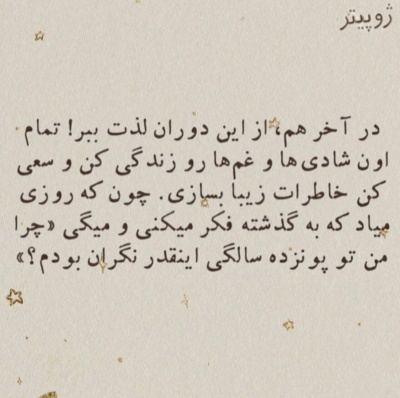 ژوپیتر
در آخر هم، از این دوران لذت ببر! تمام
اون شادی‌ها و غم‌ها رو زندگی کن و سعی
کن خاطرات زیبا بسازی. چون که روزی
میاد که به گذشته فکر میکنی و میگی «چرا
من تو پونزده سالگی اینقدر نگران بودم؟»